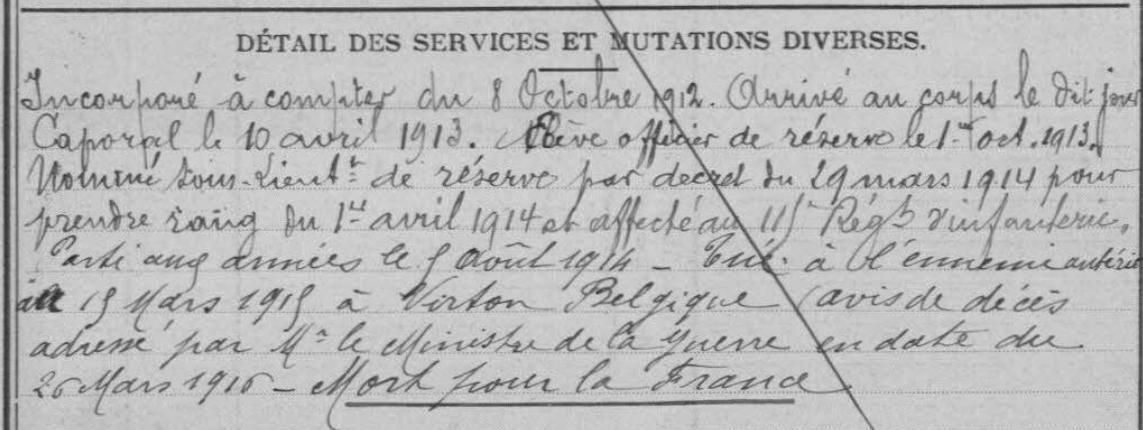 DÉTAIL DES SERVICES ET MUTATIONS DIVERSES.
Incorporé à compter du 8 Octobre 1912. Arrivé au corps le dit jour
Caporal le 10 avril 1913. Elève officier de réserve le 1er oct. 1913.
Nommé sous-Lieut.t de réserve par décret du 29 mars 1914 pour
prendre rang du 1er avril 1914 et affecté au 115e Régt d'infanterie.
Parti aux armées le 5 août 1914 - Tué à l'ennemi antérieur
au 15 Mars 1915 à Virton Belgique (avis de décès
adressé par Mr le Ministre de la Guerre en date du
26 Mars 1916 - Mort pour la France